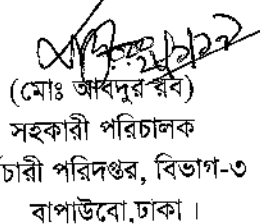 (মোঃ আবদুর রব)
সহকারী পরিচালক
চারী পরিদপ্তর, বিভাগ-৩
বাপাউবো,ঢাকা।